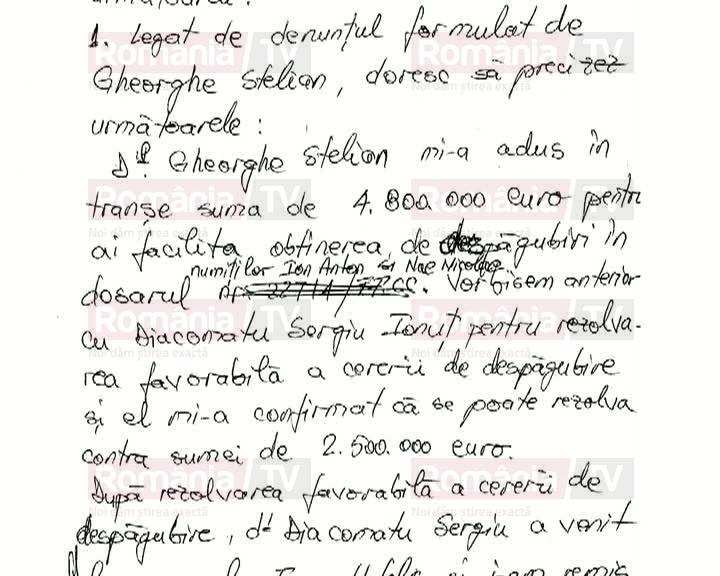 următoarea :
1. Legat de denunțul formulat de
Gheorghe Stelian, doresc să precizez
următoarele :
Dl. Gheorghe Stelian mi-a adus în
tranșe suma de 4.800.000 euro pentru
ai facilita obtinerea de despăgubiri în
numiților Ion Anton si Nae Nicolae
dosarul . Vorbisem anterior
cu Diacomatu Sergiu Ionuț pentru rezolva-
rea favorabilă a cererii de despăgubire
și el mi-a confirmat că se poate rezolva
contra sumei de 2.500.000 euro.
După rezolvarea favorabilă a cererii de
despăgubire, dl Diacomatu Sergiu a venit
România TV
Noi dăm știrea exactă
România TV
Noi dăm știrea exactă
România TV
Noi dăm știrea exactă
România TV
Noi dăm știrea exactă
România TV
Noi dăm știrea exactă
România TV
Noi dăm știrea exactă
România TV
Noi dăm știrea exactă
România TV
Noi dăm știrea exactă